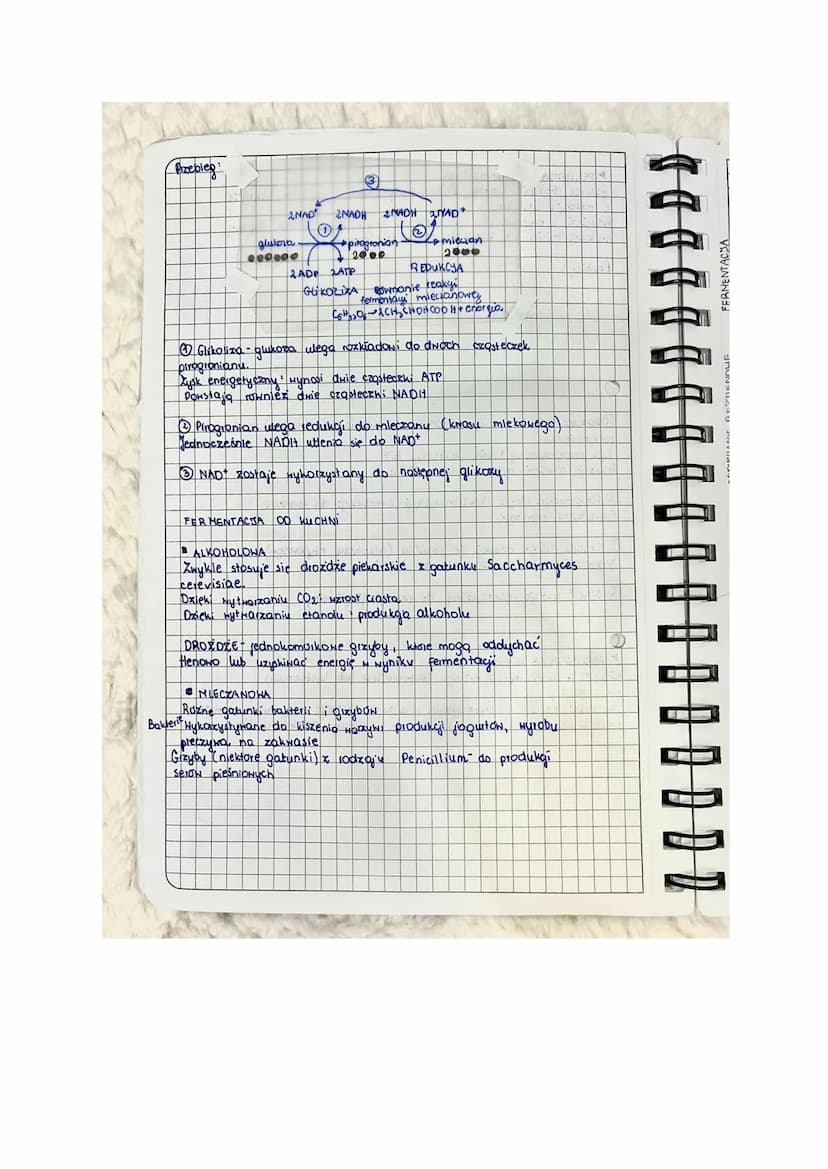 Przebieg:
③
2NAD⁺ 2NADH 2NADH 2NAD⁺
① ②
glukoza pirogronian mleczan
2 2
2ADP 2ATP REDUKCJA
GLIKOLIZA równanie reakcji
fermentacji mleczanowej
C₆H₁₂O₆→2CH₃CHOHCOOH+energia
① Glikoliza - glukoza ulega rozkładowi do dwóch cząsteczek
pirogronianu.
Zysk energetyczny: wynosi dwie cząsteczki ATP
Powstają również dwie cząsteczki NADH
② Pirogronian ulega redukcji do mleczanu (kwasu mlekowego)
Jednocześnie NADH utlenia się do NAD⁺
③ NAD⁺ zostaje wykorzystany do następnej glikozy
FERMENTACJA OD KUCHNI
▪ ALKOHOLOWA
Zwykle stosuje się drożdże piekarskie z gatunku Saccharmyces
cerevisiae.
Dzięki wytwarzaniu CO₂: wzrost ciasta
Dzięki wytwarzaniu etanolu: produkcja alkoholu
DROŻDŻE - jednokomórkowe grzyby, które mogą oddychać
tlenowo lub uzyskiwać energię w wyniku fermentacji
▪ MLECZANOWA
Różne gatunki bakterii i grzybów
Bakterie wykorzystywane do kiszenia warzyw, produkcji jogurtów, wyrobu
pieczywa na zakwasie
Grzyby (niektóre gatunki) z rodzaju Penicillium - do produkcji
serów pleśniowych
FERMENTACJA